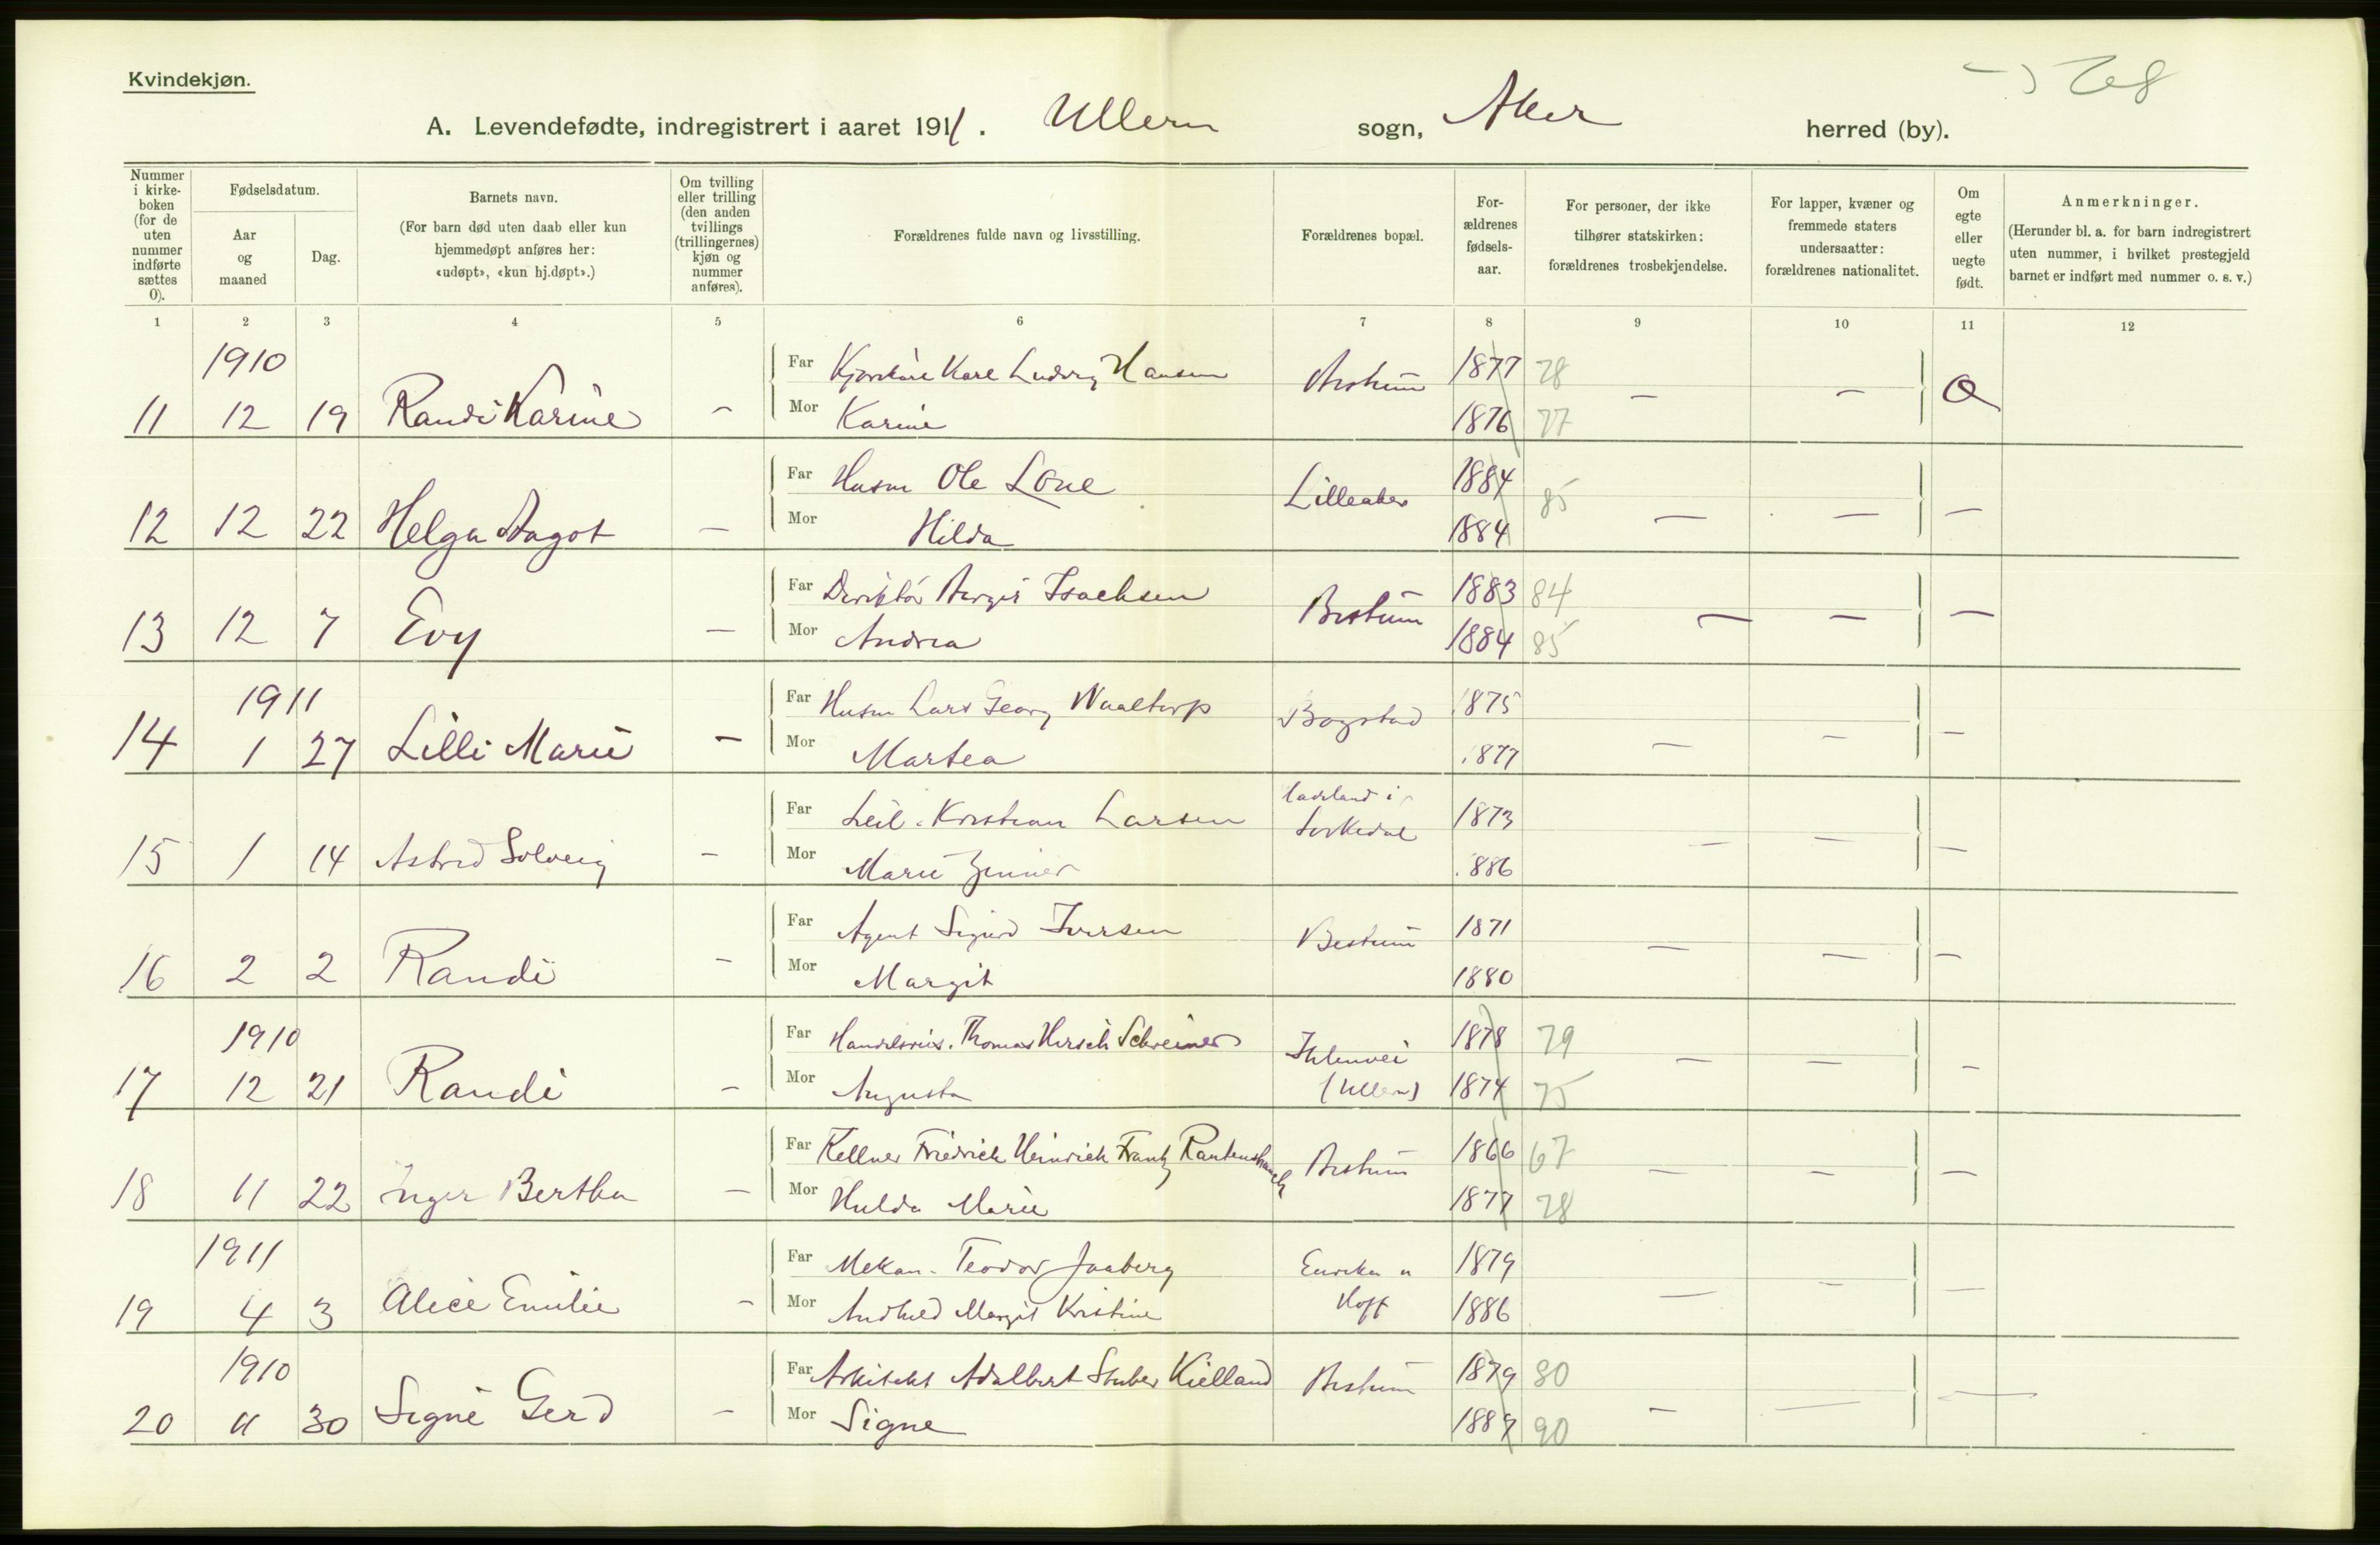 Kvindekjøn.
268
A. Levendefødte, indregistrert i aaret 1911. Ullern sogn, Aker herred (by).
Nummer i kirke-boken (for de uten nummer indførte sættes 0).
Fødselsdatum.
Aar og maaned
Dag.
Barnets navn.
(For barn død uten daab eller kun hjemmedøpt anføres her: «udøpt», «kun hj.døpt».)
Om tvilling eller trilling (den anden tvillings (trillingernes) kjøn og nummer anføres).
Forældrenes fulde navn og livsstilling.
Forældrenes bopæl.
For-ældrenes fødsels-aar.
For personer, der ikke tilhører statskirken: forældrenes trosbekjendelse.
For lapper, kvæner og fremmede staters undersaatter: forældrenes nationalitet.
Om egte eller uegte født.
Anmerkninger.
(Herunder bl. a. for barn indregistrert uten nummer, i hvilket prestegjeld barnet er indført med nummer o. s. v.)
1 2 3 4 5 6 7 8 9 10 11 12
1910
Far Karl Ludvig Hansen Bestum 1877 78
11 12 19 Randi Karine - Mor Karine 1876 77 - -
Far Husm Ole Lone Lilleaker 1884 85
12 12 22 Helga Aagot - Mor Hilda 1884 - - -
Far Direktør Birger Isachsen Bestum 1883 84
13 12 7 Evy - Mor Andrea 1884 85 - - -
1911
Far Husm Lars Georg Waaltorp Bogstad 1875
14 1 27 Lilli Marie - Mor Martea 1877 - - -
Far Leil. Kristian Larsen i Sørkedal 1873
15 1 14 Astrid Solveig - Mor Marie Jenner 1886 - - -
Far Agent Sigurd Iversen Bestum 1871
16 2 2 Randi - Mor Margit 1880 - - -
1910
Far Handelsreis. Thomas Hirsch Schreiner (Ullern) 1878 79
17 12 21 Randi - Mor Augusta 1874 75 - - -
Far Kellner Friedrich Heinrich Frantz Rautenstrauch Bestum 1866 67
18 11 22 Inger Bertha - Mor Hulda Marie 1877 78 - - -
1911
Far Mekan. Teodor Jaaberg Eureka n Hoff 1879
19 4 3 Alice Emilie - Mor Margit Kristine 1886 - - -
1910
Far Arkitekt Adalbert Stuber Kielland Bestum 1879 80
20 11 30 Signe Gerd - Mor Signe 1889 90 - - -